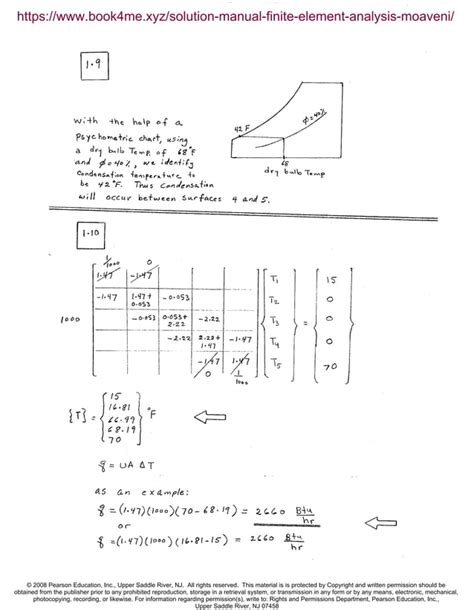 https://www.book4me.xyz/solution-manual-finite-element-analysis-moaveni/
1.9
with the help of a
Psychometric chart, using
a dry bulb Temp. of 68°F
and ϕ=40%, we identify
Condensation temperature to
be 42°F. Thus Condensation
will occur between surfaces 4 and 5.
42 F
ϕ=40%
68
dry bulb Temp
1.10
1/1000 0
1.47 -1.47
-1.47 1.47+0.053 -0.053
-0.053 0.053+2.22 -2.22
-2.22 2.22+1.47 -1.47
-1.47 1.47
0 1/1000
1000
T1
T2
T3
T4
T5
=
15
0
0
0
70
{T} = {15
16.81
66.99
68.19
70} °F
q = UA ΔT
as an example:
q = (1.47)(1000)(70-68.19) = 2660 Btu/hr
or
q = (1.47)(1000)(16.81-15) = 2660 Btu/hr
© 2008 Pearson Education, Inc., Upper Saddle River, NJ. All rights reserved. This material is is protected by Copyright and written permission should be
obtained from the publisher prior to any prohibited reproduction, storage in a retrieval system, or transmission in any form or by any means, electronic, mechanical,
photocopying, recording, or likewise. For information regarding permission(s), write to: Rights and Permissions Department, Pearson Education, Inc.,
Upper Saddle River, NJ 07458